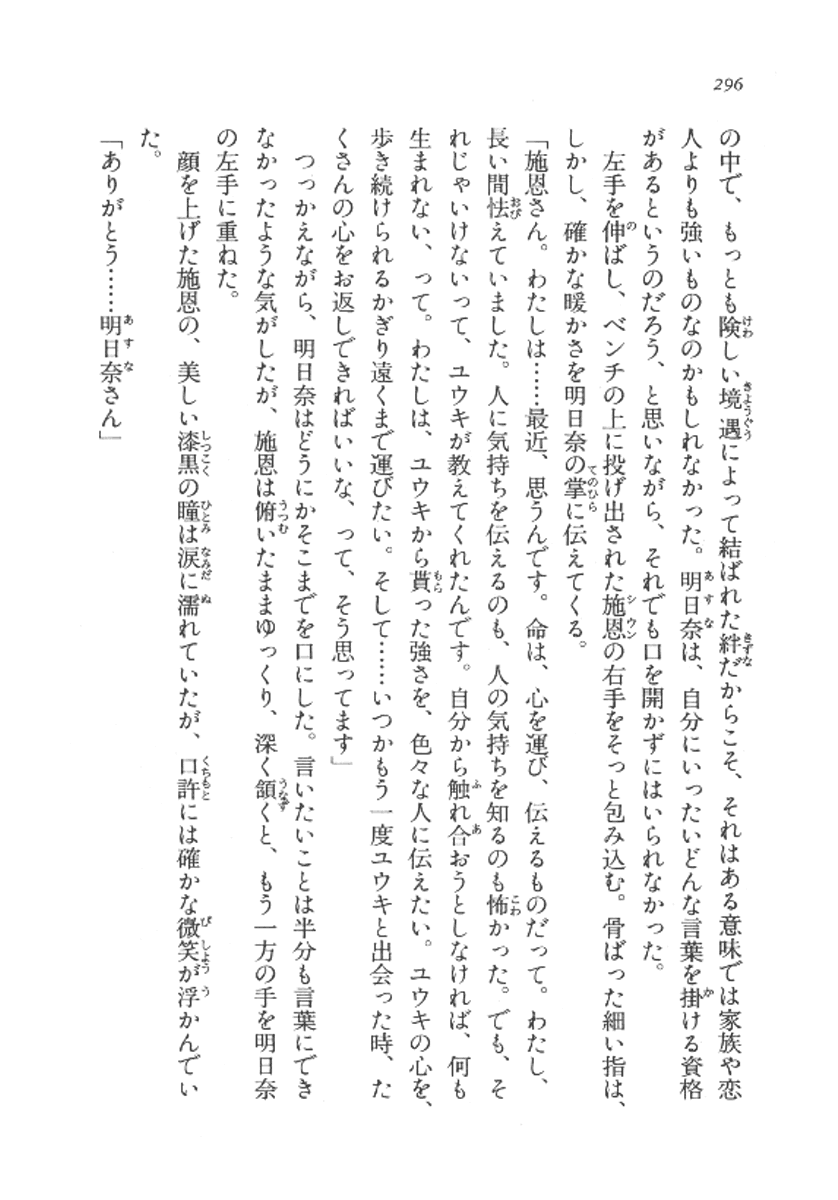 296
の中で、もっとも険しい境遇によって結ばれた絆だからこそ、それはある意味では家族や恋
人よりも強いものなのかもしれなかった。明日奈は、自分にいったいどんな言葉を掛ける資格
があるというのだろう、と思いながら、それでも口を開かずにはいられなかった。
　左手を伸ばし、ベンチの上に投げ出された施恩の右手をそっと包み込む。骨ばった細い指は、
しかし、確かな暖かさを明日奈の掌に伝えてくる。
「施恩さん。わたしは……最近、思うんです。命は、心を運び、伝えるものだって。わたし、
長い間怯えていました。人に気持ちを伝えるのも、人の気持ちを知るのも怖かった。でも、そ
れじゃいけないって、ユウキが教えてくれたんです。自分から触れ合おうとしなければ、何も
生まれない、って。わたしは、ユウキから貰った強さを、色々な人に伝えたい。ユウキの心を、
歩き続けられるかぎり遠くまで運びたい。そして……いつかもう一度ユウキと出会った時、た
くさんの心をお返しできればいいな、って、そう思ってます」
　つっかえながら、明日奈はどうにかそこまでを口にした。言いたいことは半分も言葉にでき
なかったような気がしたが、施恩は俯いたままゆっくり、深く頷くと、もう一方の手を明日奈
の左手に重ねた。
　顔を上げた施恩の、美しい漆黒の瞳は涙に濡れていたが、口許には確かな微笑が浮かんでい
た。
「ありがとう……明日奈さん」